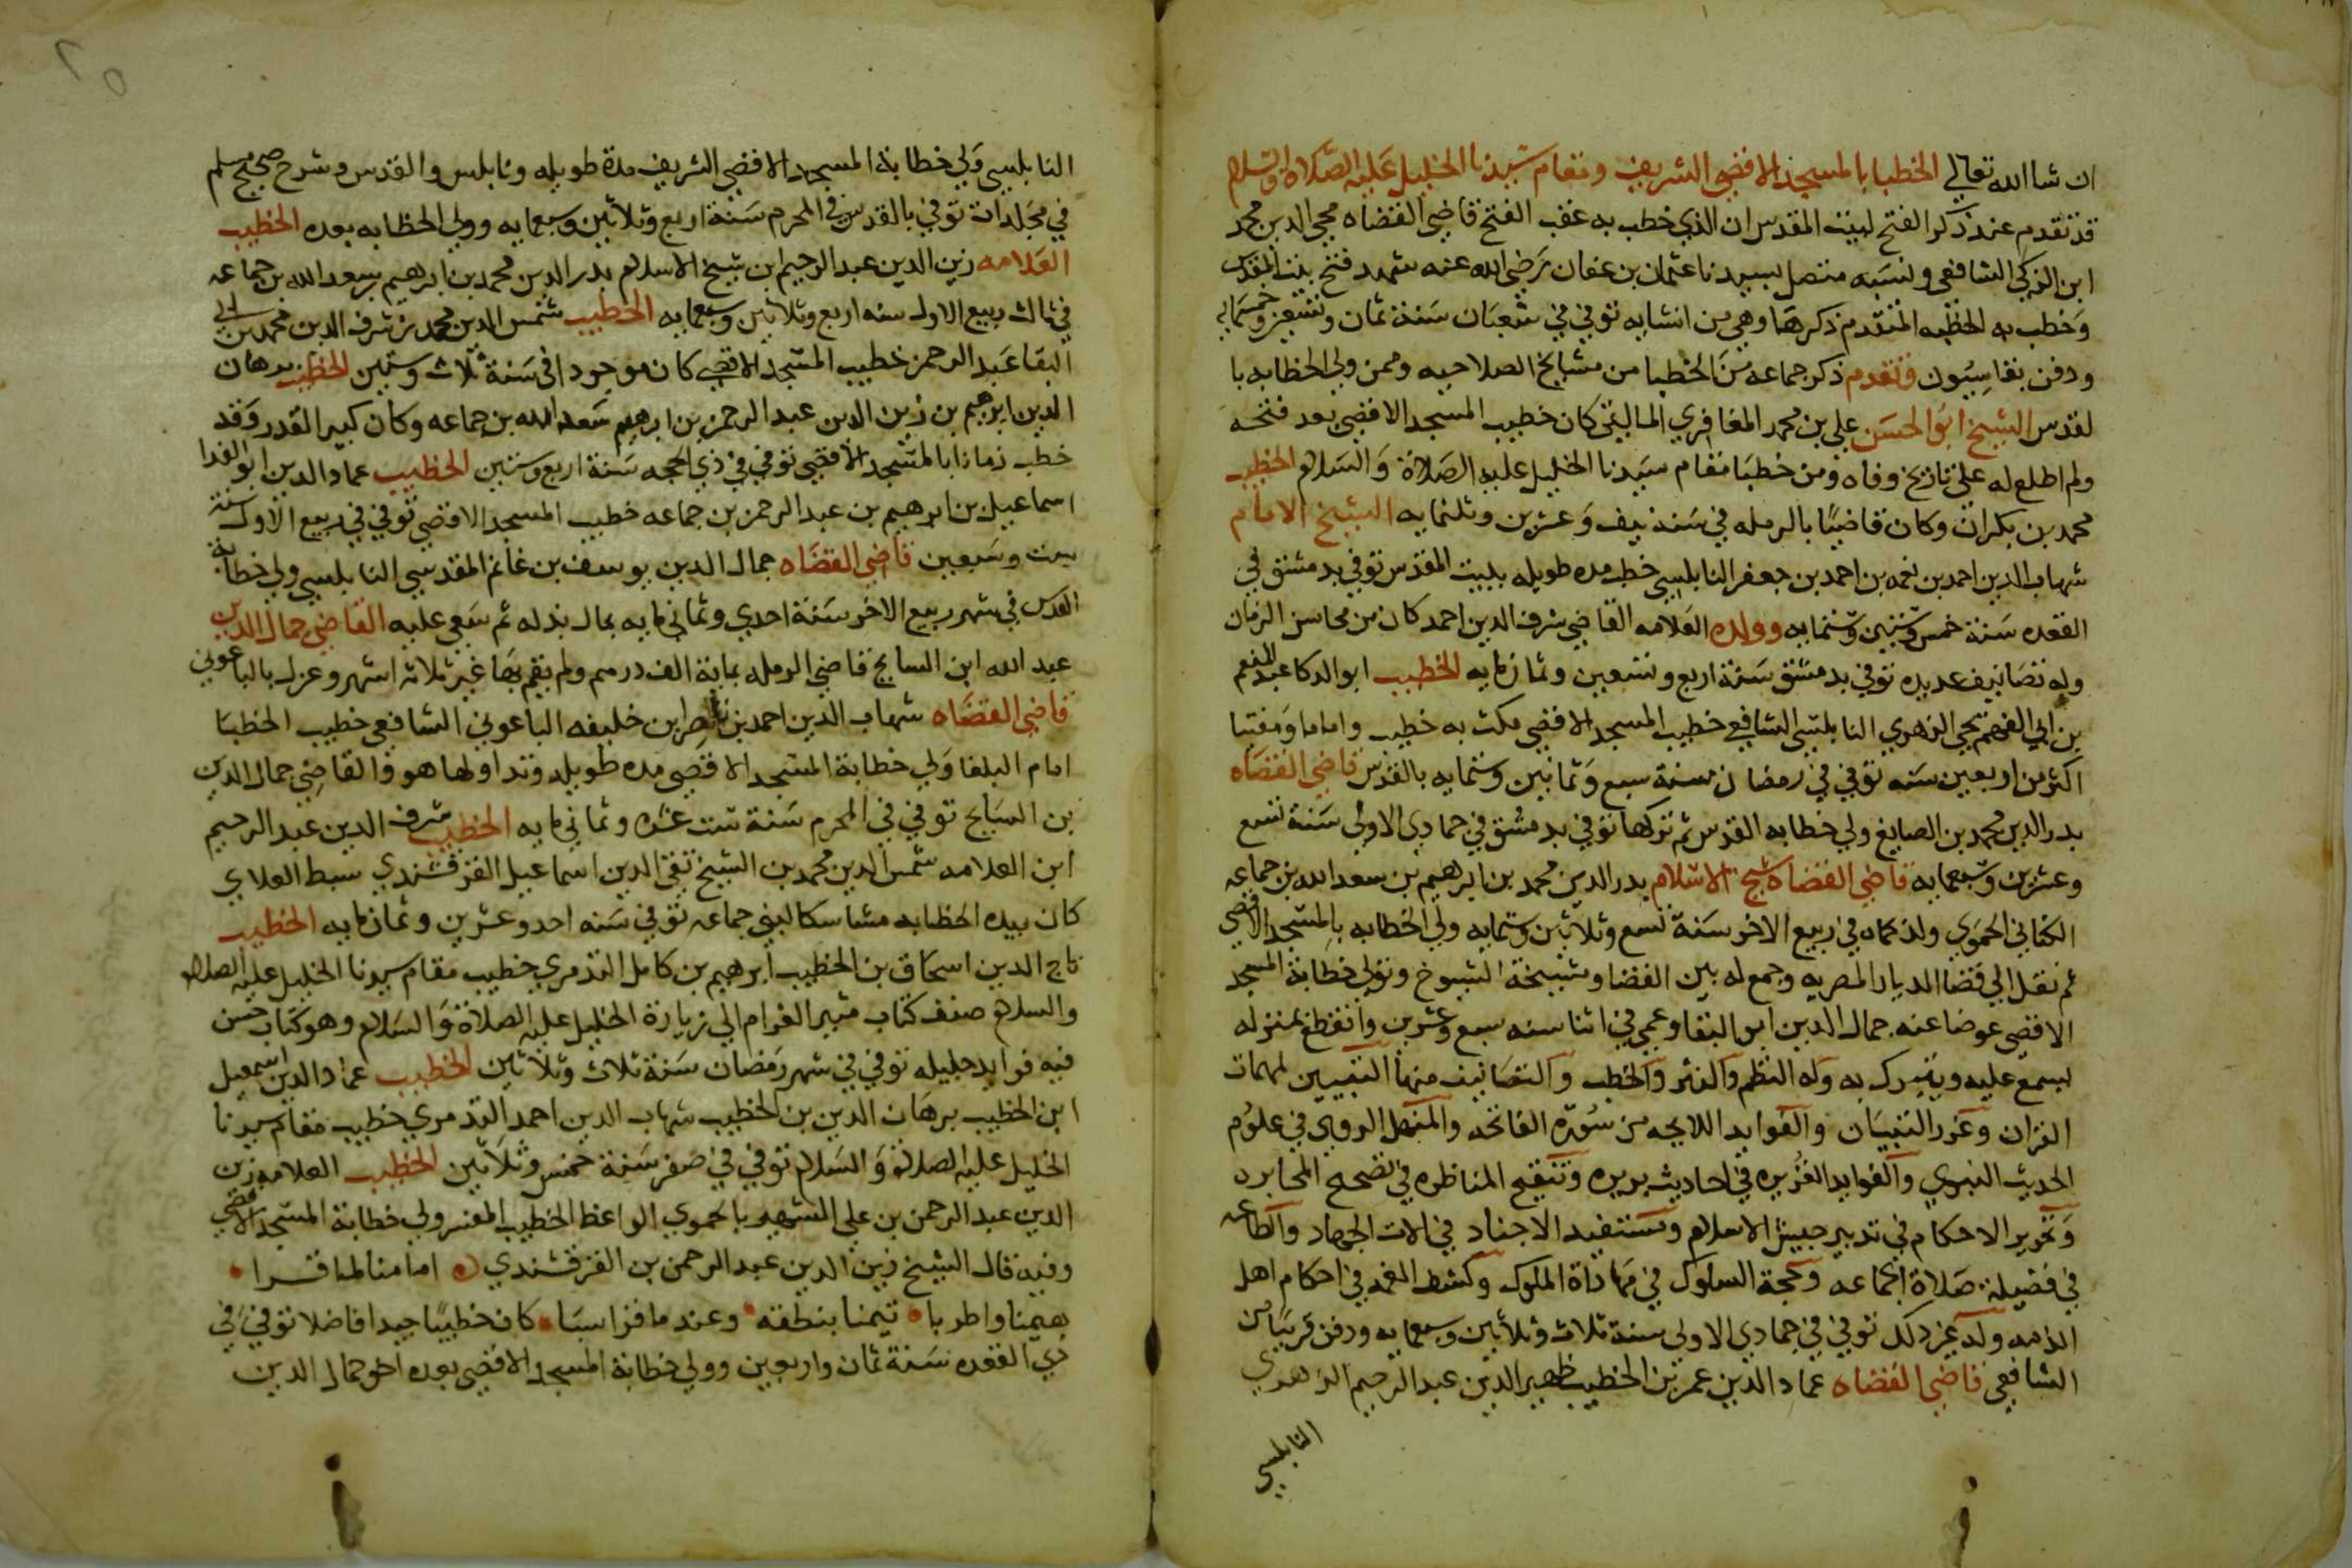 ان شا الله تعالي الخطبا بالمسجد الاقصي الشريف ومقام سيدنا الخليل عليه الصلاة والسلام
قد تقدم عند ذكر الفتح لبيت المقدس ان الذي خطب به عقب الفتح قاضي القضاه محيي الدين محمد
ابن الزكي الشافعي ونسبه متصل بسيدنا عثمان بن عفان رضي الله عنه شهد فتح بيت المقدس
وخطب به الخطبه المتقدم ذكرها وهي من انشايه توفي في شعبان سنة ثمان وتسعين وخمسمايه
ودفن بقاسيون وتقدم ذكر جماعه من الخطبا من مشايخ الصلاحيه وممن ولي الخطابه با
لقدس الشيخ ابو الحسن علي بن محمد المعافري المالقي كان خطيب المسجد الاقصي بعد فتحه
ولم اطلع له علي تاريخ وفاه ومن خطبا مقام سيدنا الخليل عليه الصلاة والسلام الخطيب
محمد بن بكران وكان قاضيا بالرمله في سنة نيف وعشرين وثلثمايه الشيخ الامام
شهاب الدين احمد بن نعمه بن احمد بن جعفر النابلسي خطب مده طويله ببيت المقدس توفي بدمشق في
القعده سنة خمس وستين وستمايه وولده العلامه القاضي شرف الدين احمد كان من محاسن الزمان
وله تصانيف عديده توفي بدمشق سنة اربع وتسعين وثمانمايه الخطيب ابو الدكا عبد المنعم
بن ابي الفهم يحيي الزهري النابلسي الشافعي خطيب المسجد الاقصي مكث به خطيب واماما ومفتيا
اكثر من اربعين سنه توفي في رمضان سنة سبع وثمانين وستمايه بالقدس قاضي القضاه
بدر الدين محمد بن الصايغ ولي خطابه القدس ثم تركها توفي بدمشق في جمادي الاولي سنة تسع
وعشرين وسبعمايه قاضي القضاه شيخ الاسلام بدر الدين محمد بن ابرهيم بن سعد الله بن جماعه
الكناني الحموي ولد بحماه في ربيع الاخر سنة تسع وثلاثين وستمايه ولي الخطابه بالمسجد الاقصي
ثم نقل الي قضا الديار المصريه وجمع له بين القضا ومشيخة الشيوخ وتولي خطابة المسجد
الاقصي عوضا عنه جمال الدين ابو البقا وعمي في اثنا سنه سبع وعشرين وانقطع بمنزله
ليسمع عليه ويتبرك به وله النظم والنثر والخطب والتصانيف منها التبيين لمبهمات
القران وغرر التبيان والفوايد اللايحه من سورة الفاتحه والمنهل الروي في علوم
الحديث النبوي والفوايد الغزيره في احاديث بريره وتنقيح المناظره في تصحيح المخابره
وتحرير الاحكام في تدبير جيش الاسلام ومستنفيد الاجناد في الات الجهاد والطاعه
في فضيلة صلاة الجماعه وحجة السلوك في مهاداة الملوك وكشف الغمه في احكام اهل
الذمه وله غير ذلك توفي في جمادي الاولي سنة ثلاث وثلاثين وسبعمايه ودفن قريبا من
الشافعي قاضي القضاه عماد الدين عمر بن الخطيب ظهير الدين عبد الرحيم الزهري
النابلسي
النابلسي ولي خطابة المسجد الاقصي الشريف مدة طويله ونابلس والقدس وشرح صحيح مسلم
في مجلدات توفي بالقدس في المحرم سنة اربع وثلاثين وسبعمايه وولي الخطابه بعده الخطيب
العلامه زين الدين عبد الرحيم ابن شيخ الاسلام بدر الدين محمد بن ابرهيم بن سعد الله بن جماعه
في ثالث ربيع الاول سنه اربع وثلاثين وسبعمايه الخطيب شمس الدين محمد بن شرف الدين محمد بن ابي
البقا عبد الرحمن خطيب المسجد الاقصي كان موجودا في سنة ثلاث وستين الخطيب برهان
الدين ابرهيم بن زين الدين عبد الرحمن بن ابرهيم سعد الله بن جماعه وكان كبير القدر وقد
خطب زمانا بالمسجد الاقصي توفي في ذي الحجه سنة اربع وستين الخطيب عماد الدين ابو الفدا
اسماعيل بن ابرهيم بن عبد الرحمن بن جماعه خطيب المسجد الاقصي توفي في ربيع الاول سنة
ست وسبعين قاضي القضاه جمال الدين يوسف بن غانم المقدسي النابلسي ولي خطابة
القدس في شهر ربيع الاخر سنة احدي وثمانمايه بمال بذله ثم سعي عليه القاضي جمال الدين
عبد الله ابن السايح قاضي الرمله بماية الف درهم ولم يقم بها غير ثلاثه اشهر وعزل بالباعوني
قاضي القضاه شهاب الدين احمد بن ناصر ابن خليفه الباعوني الشافعي خطيب الخطبا
امام البلغا ولي خطابة المسجد الاقصي مده طويله وتداولها هو والقاضي جمال الدين
بن السايح توفي في المحرم سنة ست عشره وثمانمايه الخطيب شرف الدين عبد الرحيم
ابن العلامه شمس الدين محمد بن الشيخ تقي الدين اسماعيل القرقشندي سبط العلاي
كان بيده الخطابه مشاسكا لبني جماعه توفي سنه احد وعشرين وثمانمايه الخطيب
تاج الدين اسحاق بن الخطيب ابرهيم بن كامل التدمري خطيب مقام سيدنا الخليل عليه الصلاه
والسلام صنف كتاب مثير الغرام الي زيارة الخليل عليه الصلاة والسلام وهو كتاب حسن
فيه فوايد جليله توفي في شهر رمضان سنة ثلاث وثلاثين الخطيب عماد الدين اسمعيل
ابن الخطيب برهان الدين بن الخطيب شهاب الدين احمد التدمري خطيب مقام سيدنا
الخليل عليه الصلاة والسلام توفي في صفر سنة خمس وثلاثين الخطيب العلامه زين
الدين عبد الرحمن بن علي الشهير بالحموي الواعظ الخطيب المفسر ولي خطابة المسجد الاقصي
وفيه قال الشيخ زين الدين عبد الرحمن بن القرقشندي امامنا لما قرا
بهيمنا واطربا تيمنا بنطقه وعند ما قرا سبا كان خطيبا جيدا فاضلا توفي في
ذي القعده سنة ثمان واربعين وولي خطابة المسجد الاقصي بعده اخو جمال الدين